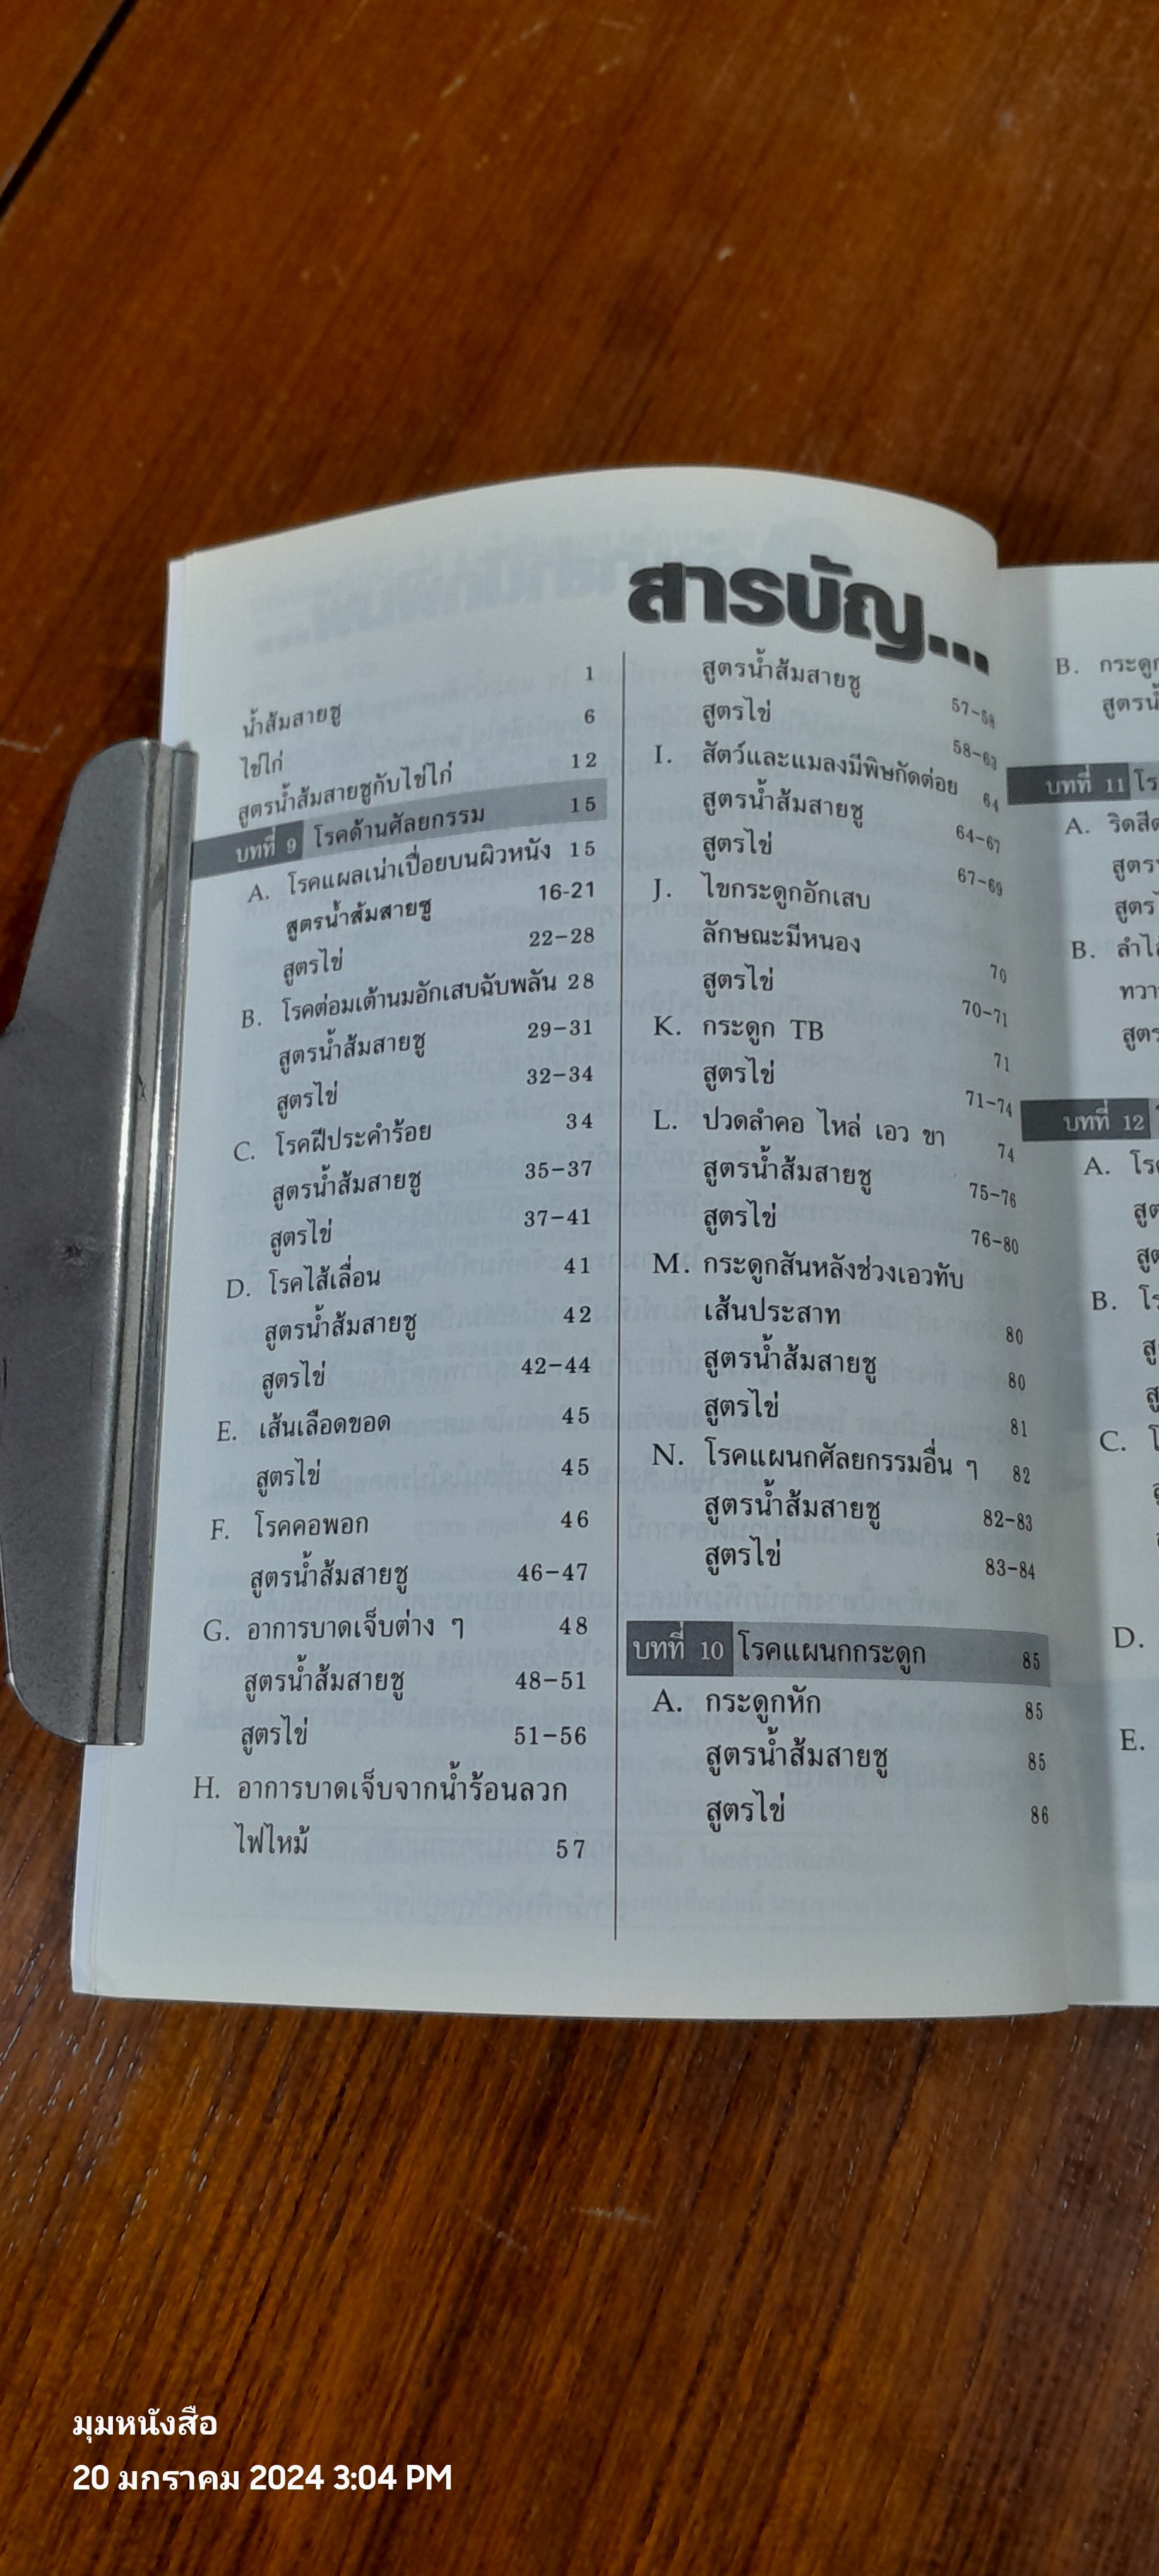 สารบัญ...
น้ำส้มสายชู 1
ไข่ไก่ 6
สูตรน้ำส้มสายชูกับไข่ไก่ 12
บทที่ 9 โรคด้านศัลยกรรม 15
A. โรคแผลเน่าเปื่อยบนผิวหนัง 15
สูตรน้ำส้มสายชู 16-21
สูตรไข่ 22-28
B. โรคต่อมเต้านมอักเสบฉับพลัน 28
สูตรน้ำส้มสายชู 29-31
สูตรไข่ 32-34
C. โรคฝีประคำร้อย 34
สูตรน้ำส้มสายชู 35-37
สูตรไข่ 37-41
D. โรคไส้เลื่อน 41
สูตรน้ำส้มสายชู 42
สูตรไข่ 42-44
E. เส้นเลือดขอด 45
สูตรไข่ 45
F. โรคคอพอก 46
สูตรน้ำส้มสายชู 46-47
G. อาการบาดเจ็บต่าง ๆ 48
สูตรน้ำส้มสายชู 48-51
สูตรไข่ 51-56
H. อาการบาดเจ็บจากน้ำร้อนลวก
ไฟไหม้ 57
สูตรน้ำส้มสายชู 57-58
สูตรไข่ 58-63
I. สัตว์และแมลงมีพิษกัดต่อย 64
สูตรน้ำส้มสายชู 64-67
สูตรไข่ 67-69
J. ไขกระดูกอักเสบ
ลักษณะมีหนอง 70
สูตรไข่ 70-71
K. กระดูก TB 71
สูตรไข่ 71-74
L. ปวดลำคอ ไหล่ เอว ขา 74
สูตรน้ำส้มสายชู 75-76
สูตรไข่ 76-80
M. กระดูกสันหลังช่วงเอวทับ
เส้นประสาท 80
สูตรน้ำส้มสายชู 80
สูตรไข่ 81
N. โรคแผนกศัลยกรรมอื่น ๆ 82
สูตรน้ำส้มสายชู 82-83
สูตรไข่ 83-84
บทที่ 10 โรคแผนกกระดูก 85
A. กระดูกหัก 85
สูตรน้ำส้มสายชู 85
สูตรไข่ 86
B.
บทที่ 11
A.
B.
บทที่ 12
A.
B.
C.
D.
E.
มุมหนังสือ
20 มกราคม 2024 3:04 PM